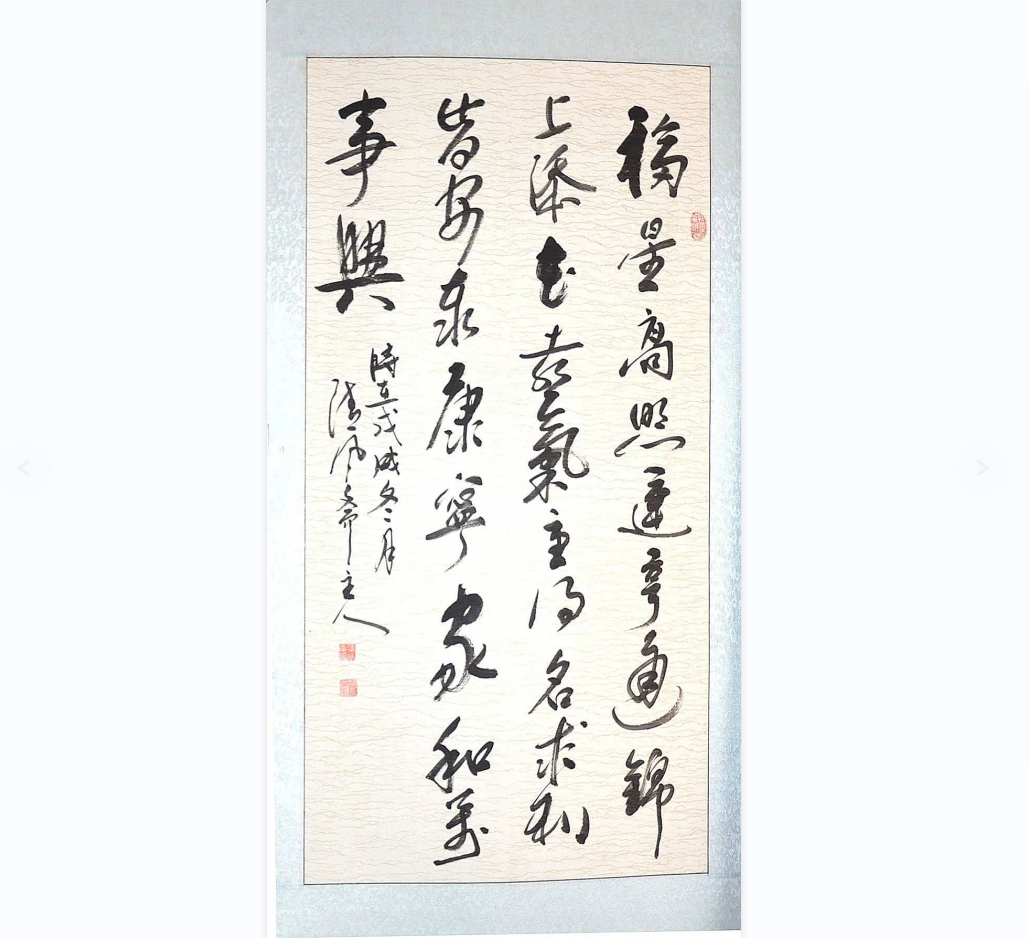 福星高照運亨通錦
上添花喜氣重得名求利
皆安泰康寧家和萬
事興
時在戊戌冬月
清風齋主人